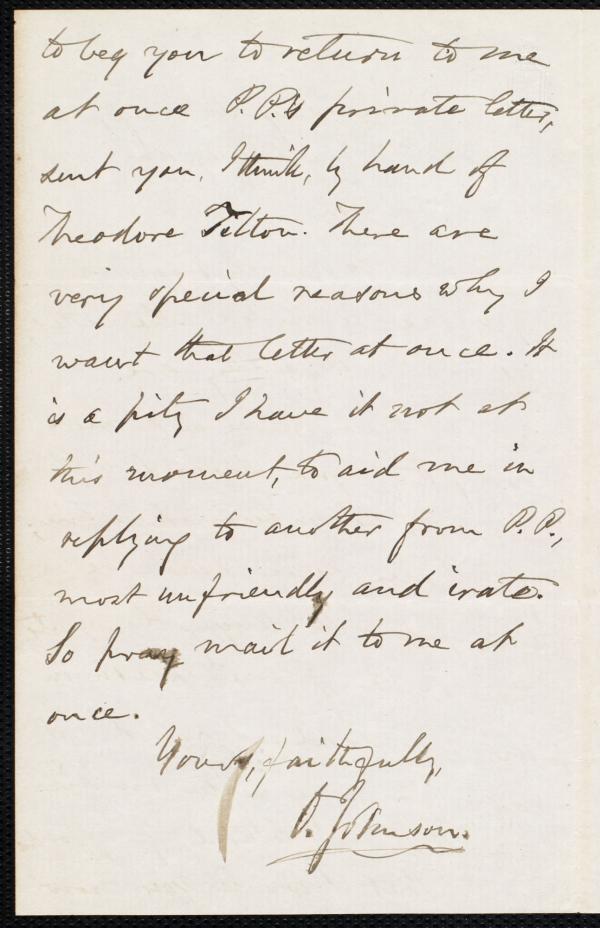 to beg you to return to me
at once P.P.'s private letter,
sent you, I think, by hand of
Theodore Tilton. There are
very special reasons why I
want that letter at once. It
is a pity I have it not at
this moment, to aid me in
replying to another from P.P.,
most unfriendly and irate.
So pray mail it to me at
once.
Yours, faithfully,
O. Johnson.